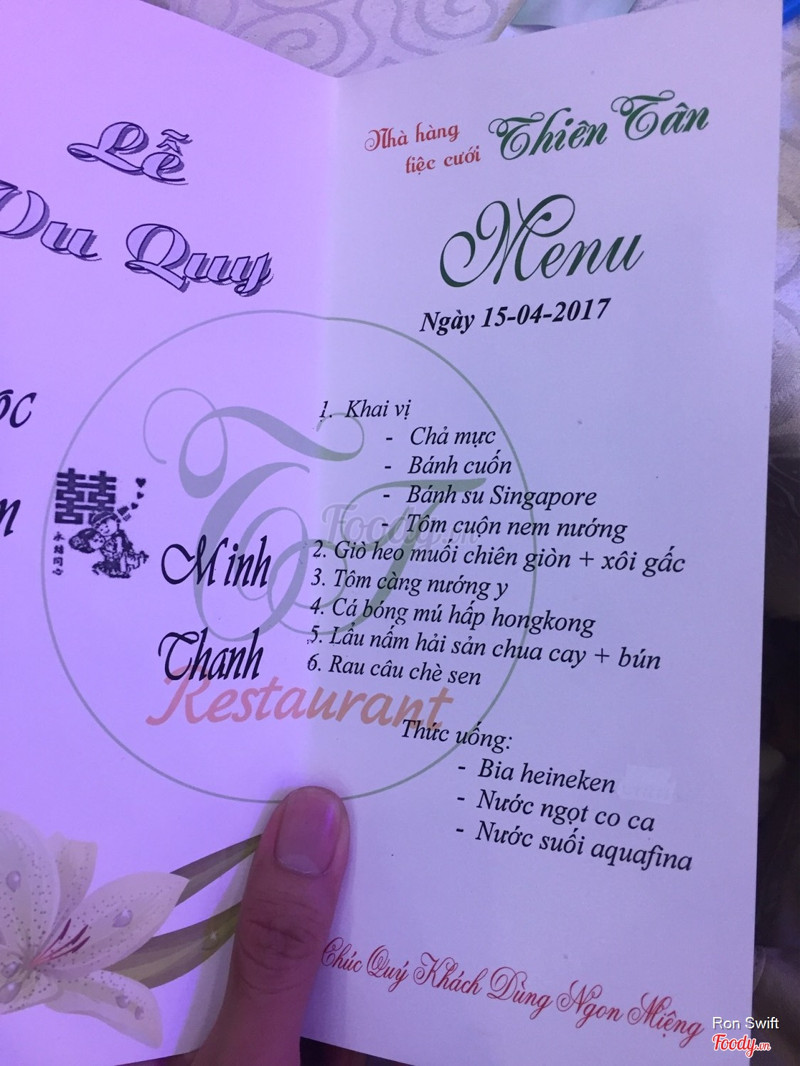 Lễ
Vu Quy
Minh
Thanh
囍
永結同心
Nhà hàng
tiệc cưới Thiên Tân
Menu
Ngày 15-04-2017
1. Khai vị
- Chả mực
- Bánh cuốn
- Bánh su Singapore
- Tôm cuộn nem nướng
2. Giò heo muối chiên giòn + xôi gấc
3. Tôm càng nướng y
4. Cá bóng mú hấp hongkong
5. Lẩu nấm hải sản chua cay + bún
6. Rau câu chè sen
TT
Restaurant
Thức uống:
- Bia heineken
- Nước ngọt co ca
- Nước suối aquafina
Chúc Quý Khách Dùng Ngon Miệng
Foody.vn
Ron Swift
Foody.vn